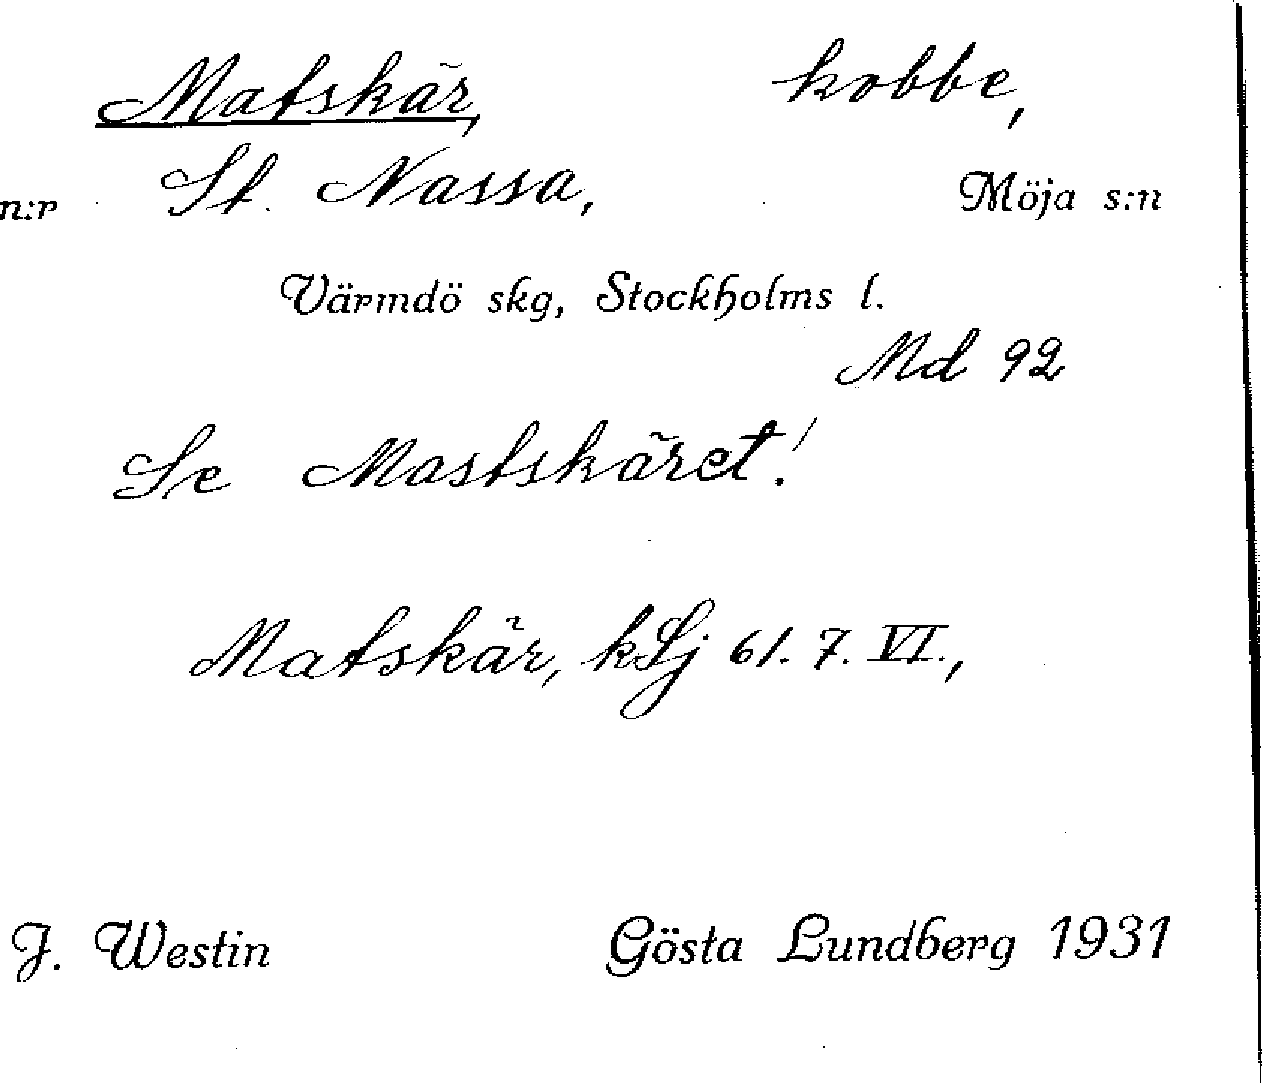 Matskär, kobbe,
n:r St. Nassa, Möja s:n
Värmdö skg, Stockholms l.
Md 92
Se Mastskäret!
Matskär, kSj 61. 7. VI.,
J. Westin Gösta Lundberg 1931